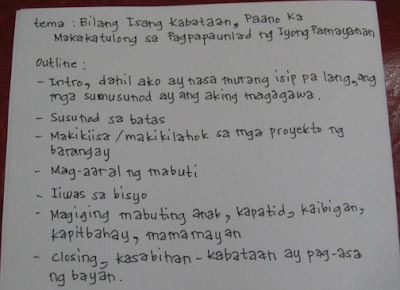 tema : Bilang Isang Kabataan, Paano Ka
Makakatulong sa Pagpapaunlad ng Iyong Pamayanan
Outline :
- Intro, dahil ako ay nasa murang isip pa lang, ang
mga sumusunod ay ang aking magagawa.
- Susunod sa batas
- Makikiisa / makikilahok sa mga proyekto ng
barangay
- Mag-aaral ng mabuti
- Iiwas sa bisyo
- Magiging mabuting anak, kapatid, kaibigan,
kapitbahay, mamamayan
- closing, kasabihan - kabataan ay pag-asa
ng bayan.